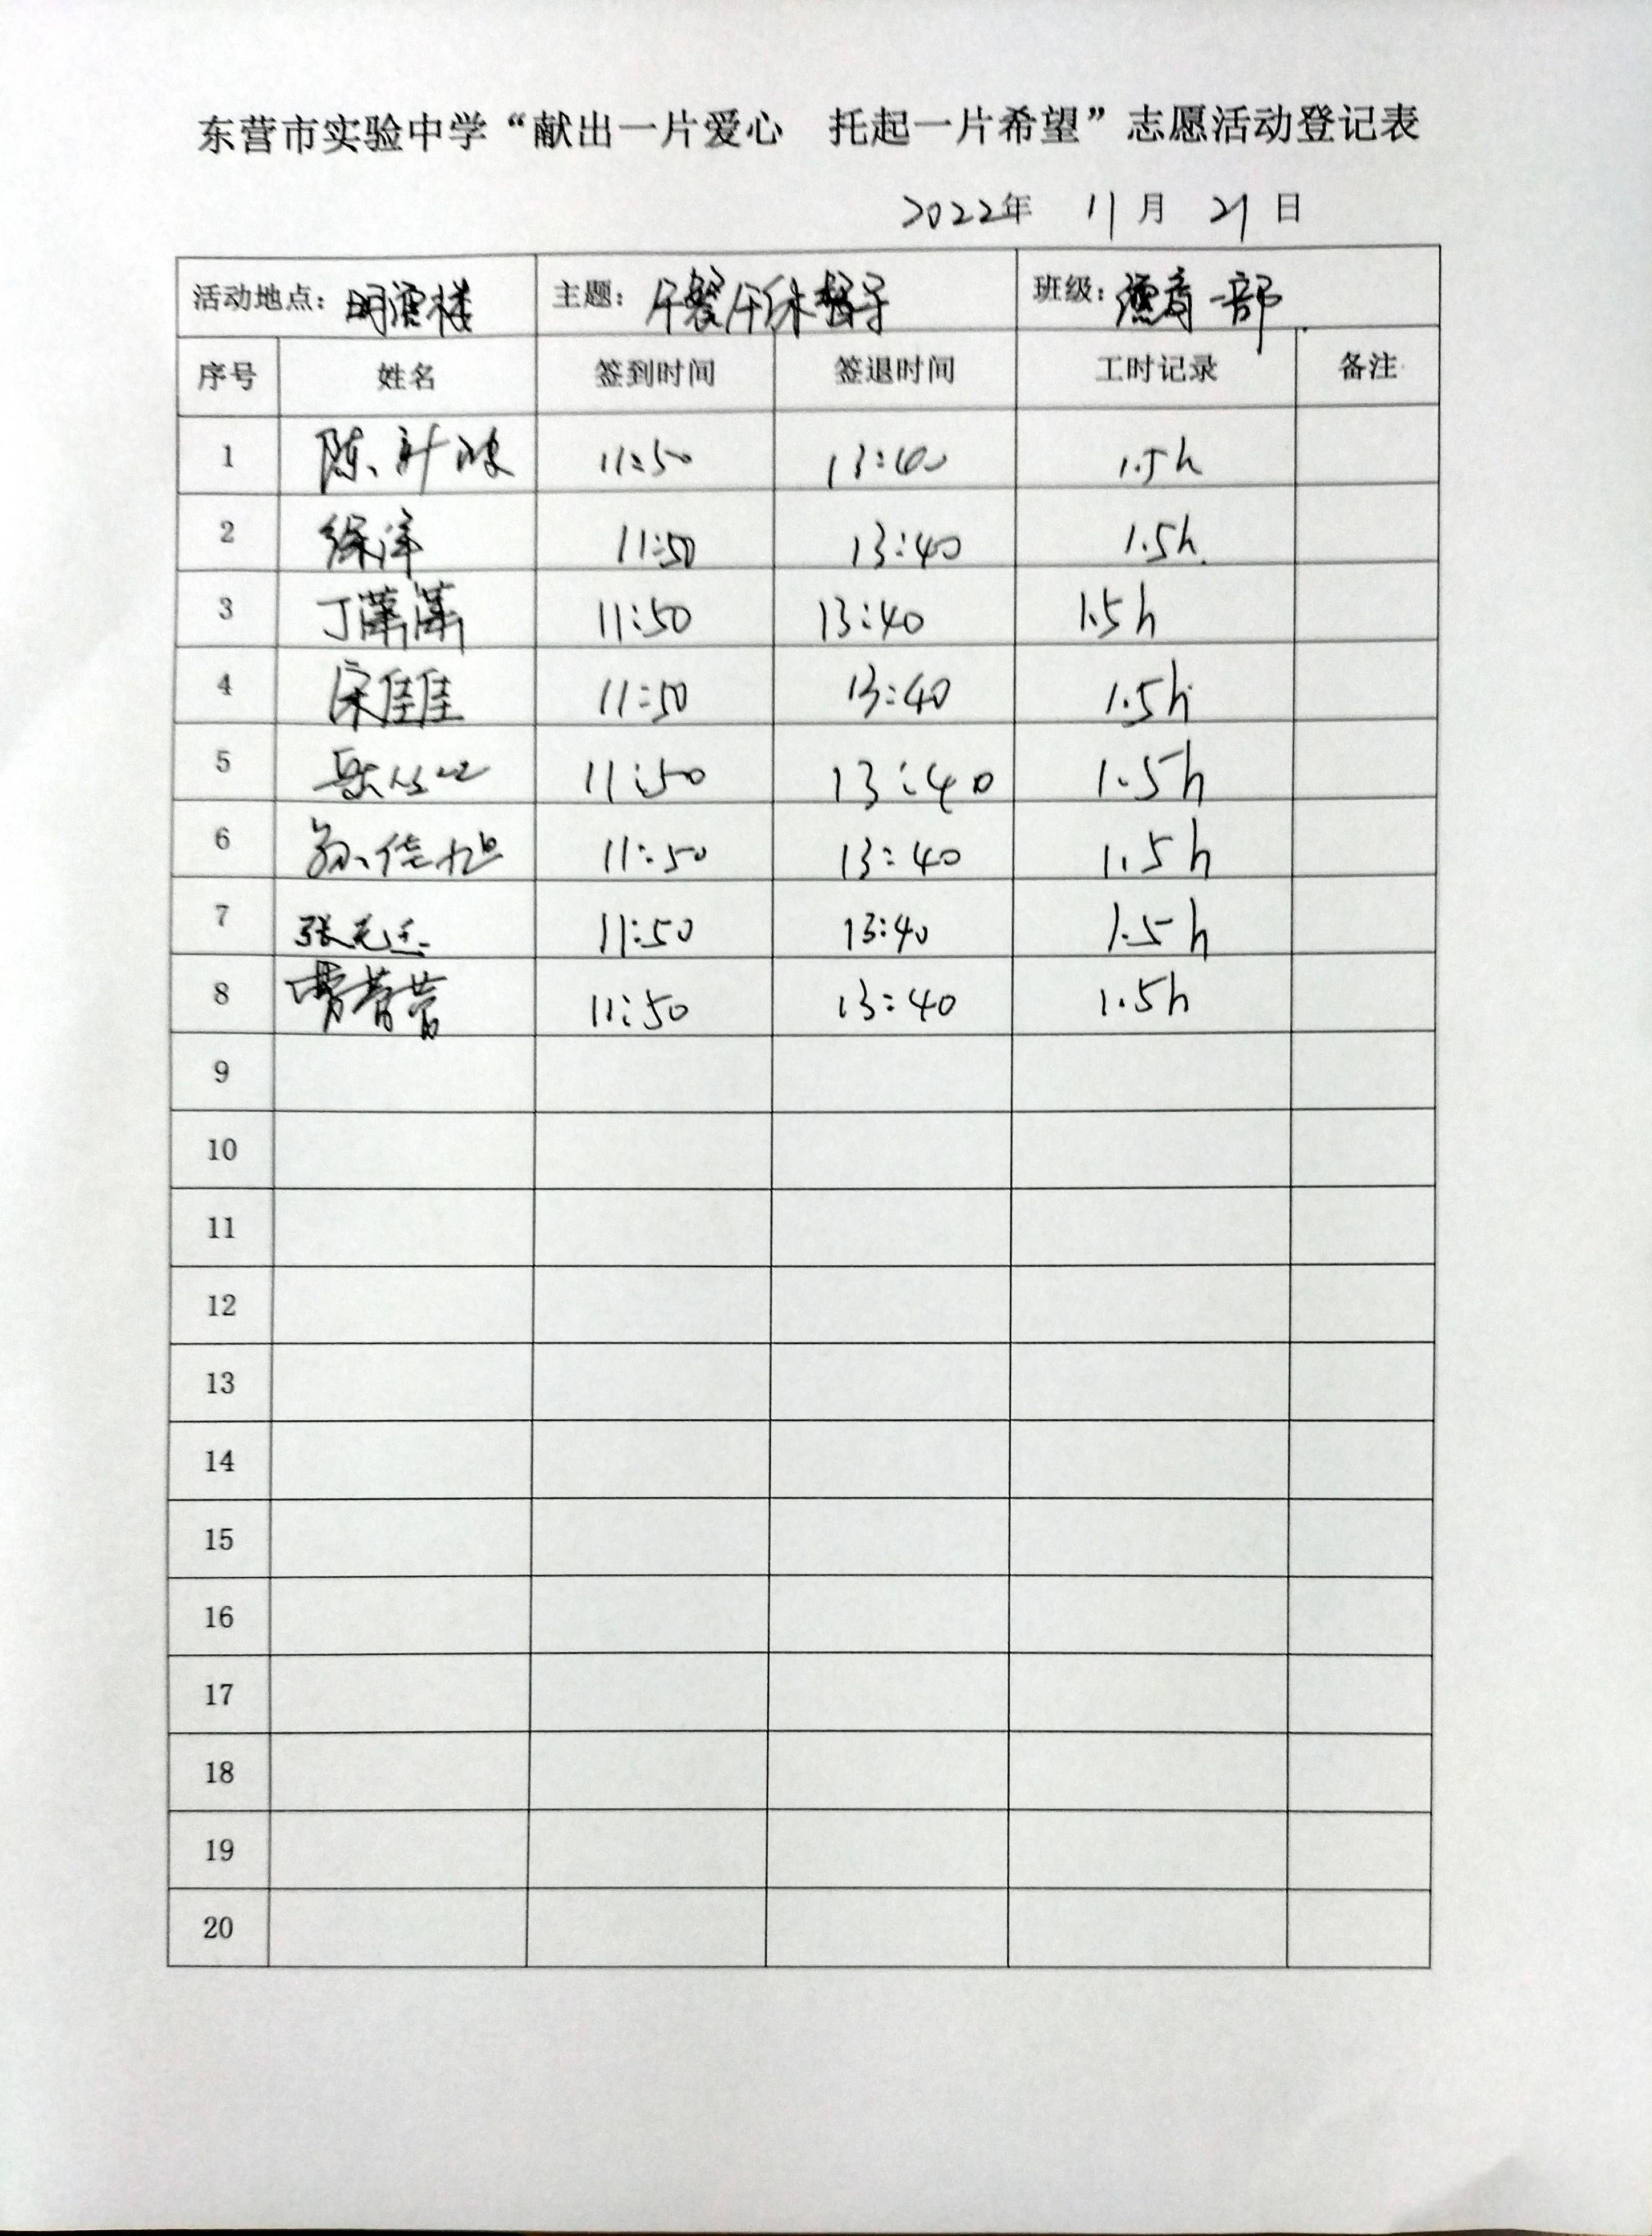 东营市实验中学“献出一片爱心 托起一片希望”志愿活动登记表
2022年 11月 21日
活动地点：明德楼 主题：午餐午休督导 班级：德育一部
序号 姓名 签到时间 签退时间 工时记录 备注
1 陈 11:50 13:40 1.5h
2 徐洋 11:50 13:40 1.5h
3 丁潇潇 11:50 13:40 1.5h
4 宋佳佳 11:50 13:40 1.5h
5 11:50 13:40 1.5h
6 孙佳旭 11:50 13:40 1.5h
7 张 11:50 13:40 1.5h
8 11:50 13:40 1.5h
9
10
11
12
13
14
15
16
17
18
19
20